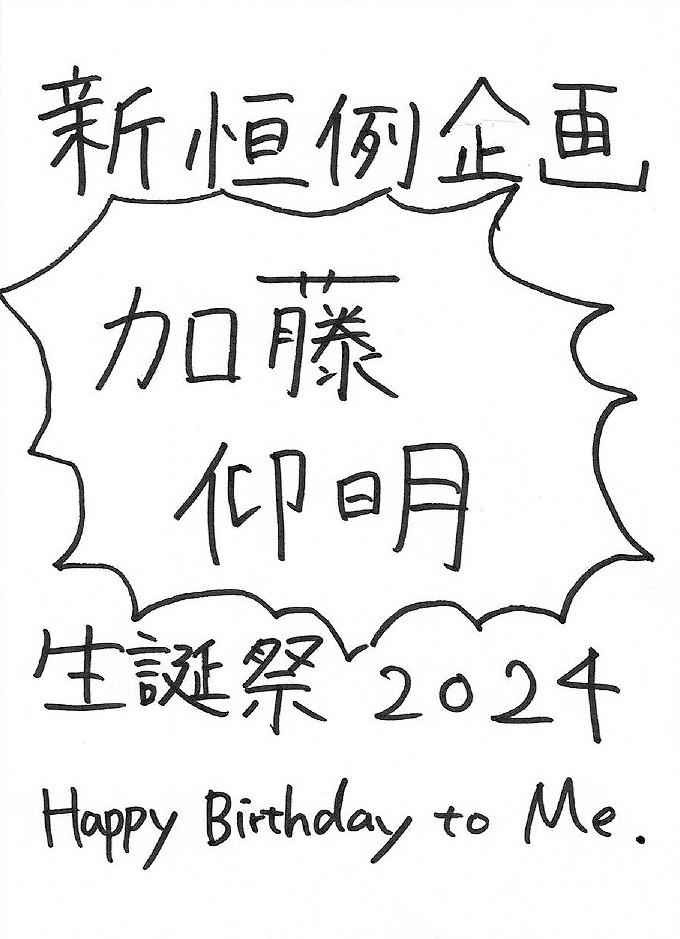 新恒例企画
加藤
仰明
生誕祭 2024
Happy Birthday to Me.